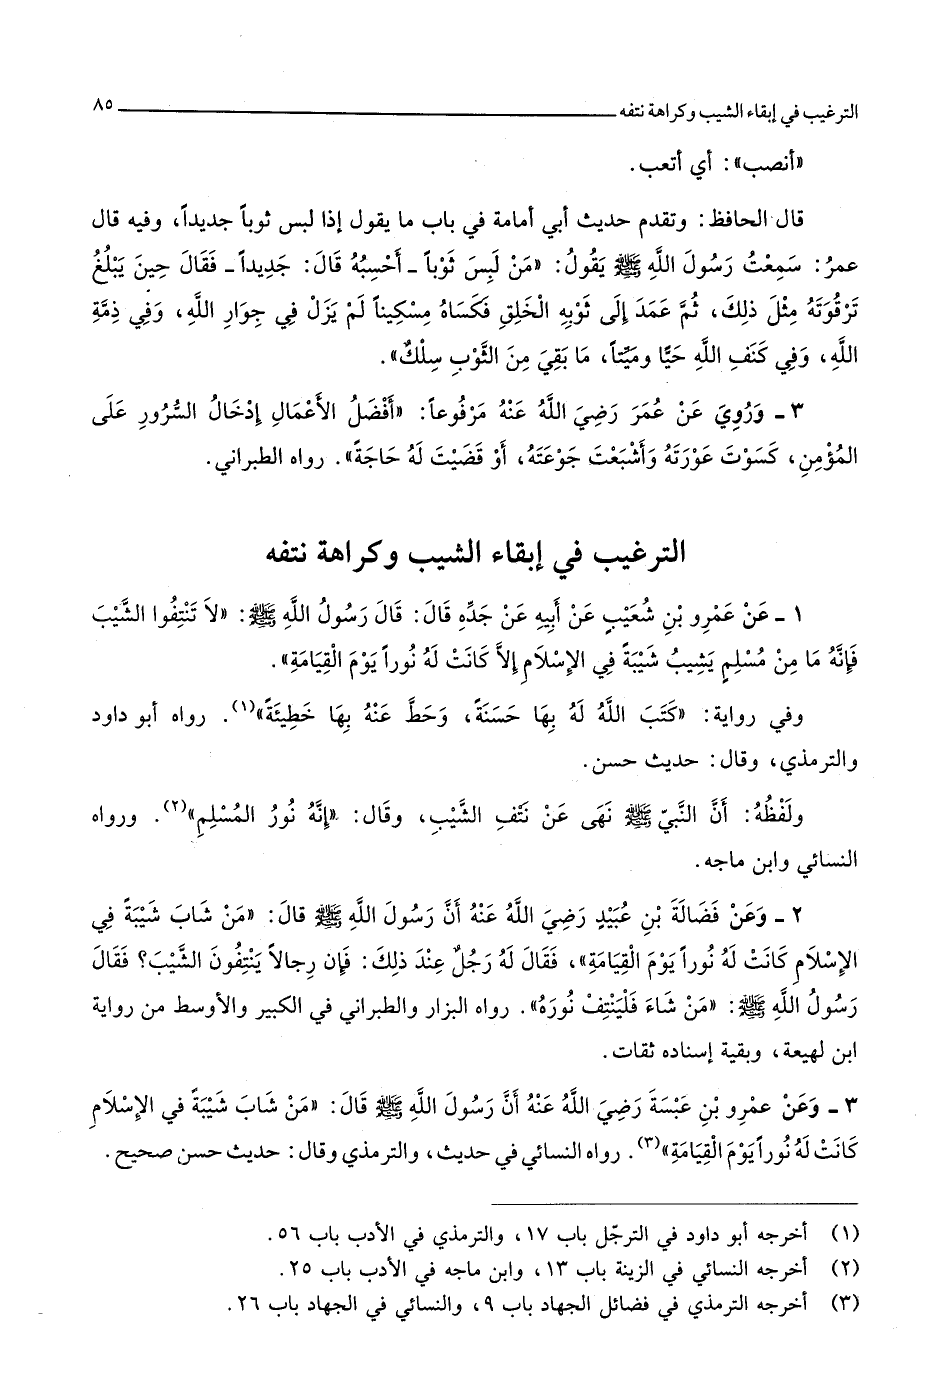 الترغيب في إبقاء الشيب وكراهة نتفه ٨٥
«أنصب»: أي أتعب.
قال الحافظ: وتقدم حديث أبي أمامة في باب ما يقول إذا لبس ثوباً جديداً، وفيه قال
عمرُ: سَمِعْتُ رَسُولَ اللَّهِ ﷺ يَقُولُ: «مَنْ لَبِسَ ثَوْباً ـ أَحْسِبُهُ قَالَ: جَدِيداً ـ فَقَالَ حِينَ يَبْلُغُ
تَرْقُوَتَهُ مِثْلَ ذلِكَ، ثُمَّ عَمَدَ إِلَى ثَوْبِهِ الْخَلِقِ فَكَسَاهُ مِسْكِيناً لَمْ يَزَلْ فِي جِوَارِ اللَّهِ، وَفِي ذِمَّةِ
اللَّهِ، وَفِي كَنَفِ اللَّهِ حَيًّا ومَيِّتاً، مَا بَقِيَ مِنَ الثَّوْبِ سِلْكٌ».
٣ ـ وَرُوِيَ عَنْ عُمَرَ رَضِيَ اللَّهُ عَنْهُ مَرْفُوعاً: «أَفْضَلُ الأَعْمَالِ إِدْخَالُ السُّرُورِ عَلَى
المُؤْمِنِ، كَسَوْتَ عَوْرَتَهُ وَأَشْبَعْتَ جَوْعَتَهُ، أَوْ قَضَيْتَ لَهُ حَاجَةً». رواه الطبراني.
الترغيب في إبقاء الشيب وكراهة نتفه
١ ـ عَنْ عَمْرِو بْنِ شُعَيْبٍ عَنْ أَبِيهِ عَنْ جَدِّهِ قَالَ: قَالَ رَسُولُ اللَّهِ ﷺ: «لاَ تَنْتِفُوا الشَّيْبَ
فَإِنَّهُ مَا مِنْ مُسْلِمٍ يَشِيبُ شَيْبَةً فِي الإِسْلَامِ إِلاَّ كَانَتْ لَهُ نُوراً يَوْمَ الْقِيَامَةِ».
وفي رواية: «كَتَبَ اللَّهُ لَهُ بِهَا حَسَنَةً، وَحَطَّ عَنْهُ بِهَا خَطِيئَةً»(١). رواه أبو داود
والترمذي، وقال: حديث حسن.
ولَفْظُهُ: أَنَّ النَّبِيّ ﷺ نَهَى عَنْ نَتْفِ الشَّيْبِ، وقَال: «إِنَّهُ نُورُ المُسْلِمِ»(٢). ورواه
النسائي وابن ماجه.
٢ ـ وَعَنْ فَضَالَةَ بْنِ عُبَيْدٍ رَضِيَ اللَّهُ عَنْهُ أَنَّ رَسُولَ اللَّهِ ﷺ قالَ: «مَنْ شَابَ شَيْبَةً فِي
الإِسْلَامِ كَانَتْ لَهُ نُوراً يَوْمَ الْقِيَامَةِ»، فَقَالَ لَهُ رَجُلٌ عِنْدَ ذلِكَ: فَإِن رِجالاً يَنْتِفُونَ الشَّيْبَ؟ فَقَالَ
رَسُولُ اللَّهِ ﷺ: «مَنْ شَاءَ فَلْيَنْتِفْ نُورَهُ». رواه البزار والطبراني في الكبير والأوسط من رواية
ابن لهيعة، وبقية إسناده ثقات.
٣ ـ وَعَنْ عمْرِو بْنِ عَبْسَةَ رَضِيَ اللَّهُ عَنْهُ أَنَّ رَسُولَ اللَّهِ ﷺ قَالَ: «مَنْ شَابَ شَيْبَةً في الإِسْلَامِ
كَانَتْ لَهُ نُوراً يَوْمَ الْقِيَامَةِ»(٣). رواه النسائي في حديث، والترمذي وقال: حديث حسن صحيح.
(١) أخرجه أبو داود في الترجّل باب ١٧، والترمذي في الأدب باب ٥٦.
(٢) أخرجه النسائي في الزينة باب ١٣، وابن ماجه في الأدب باب ٢٥.
(٣) أخرجه الترمذي في فضائل الجهاد باب ٩، والنسائي في الجهاد باب ٢٦.